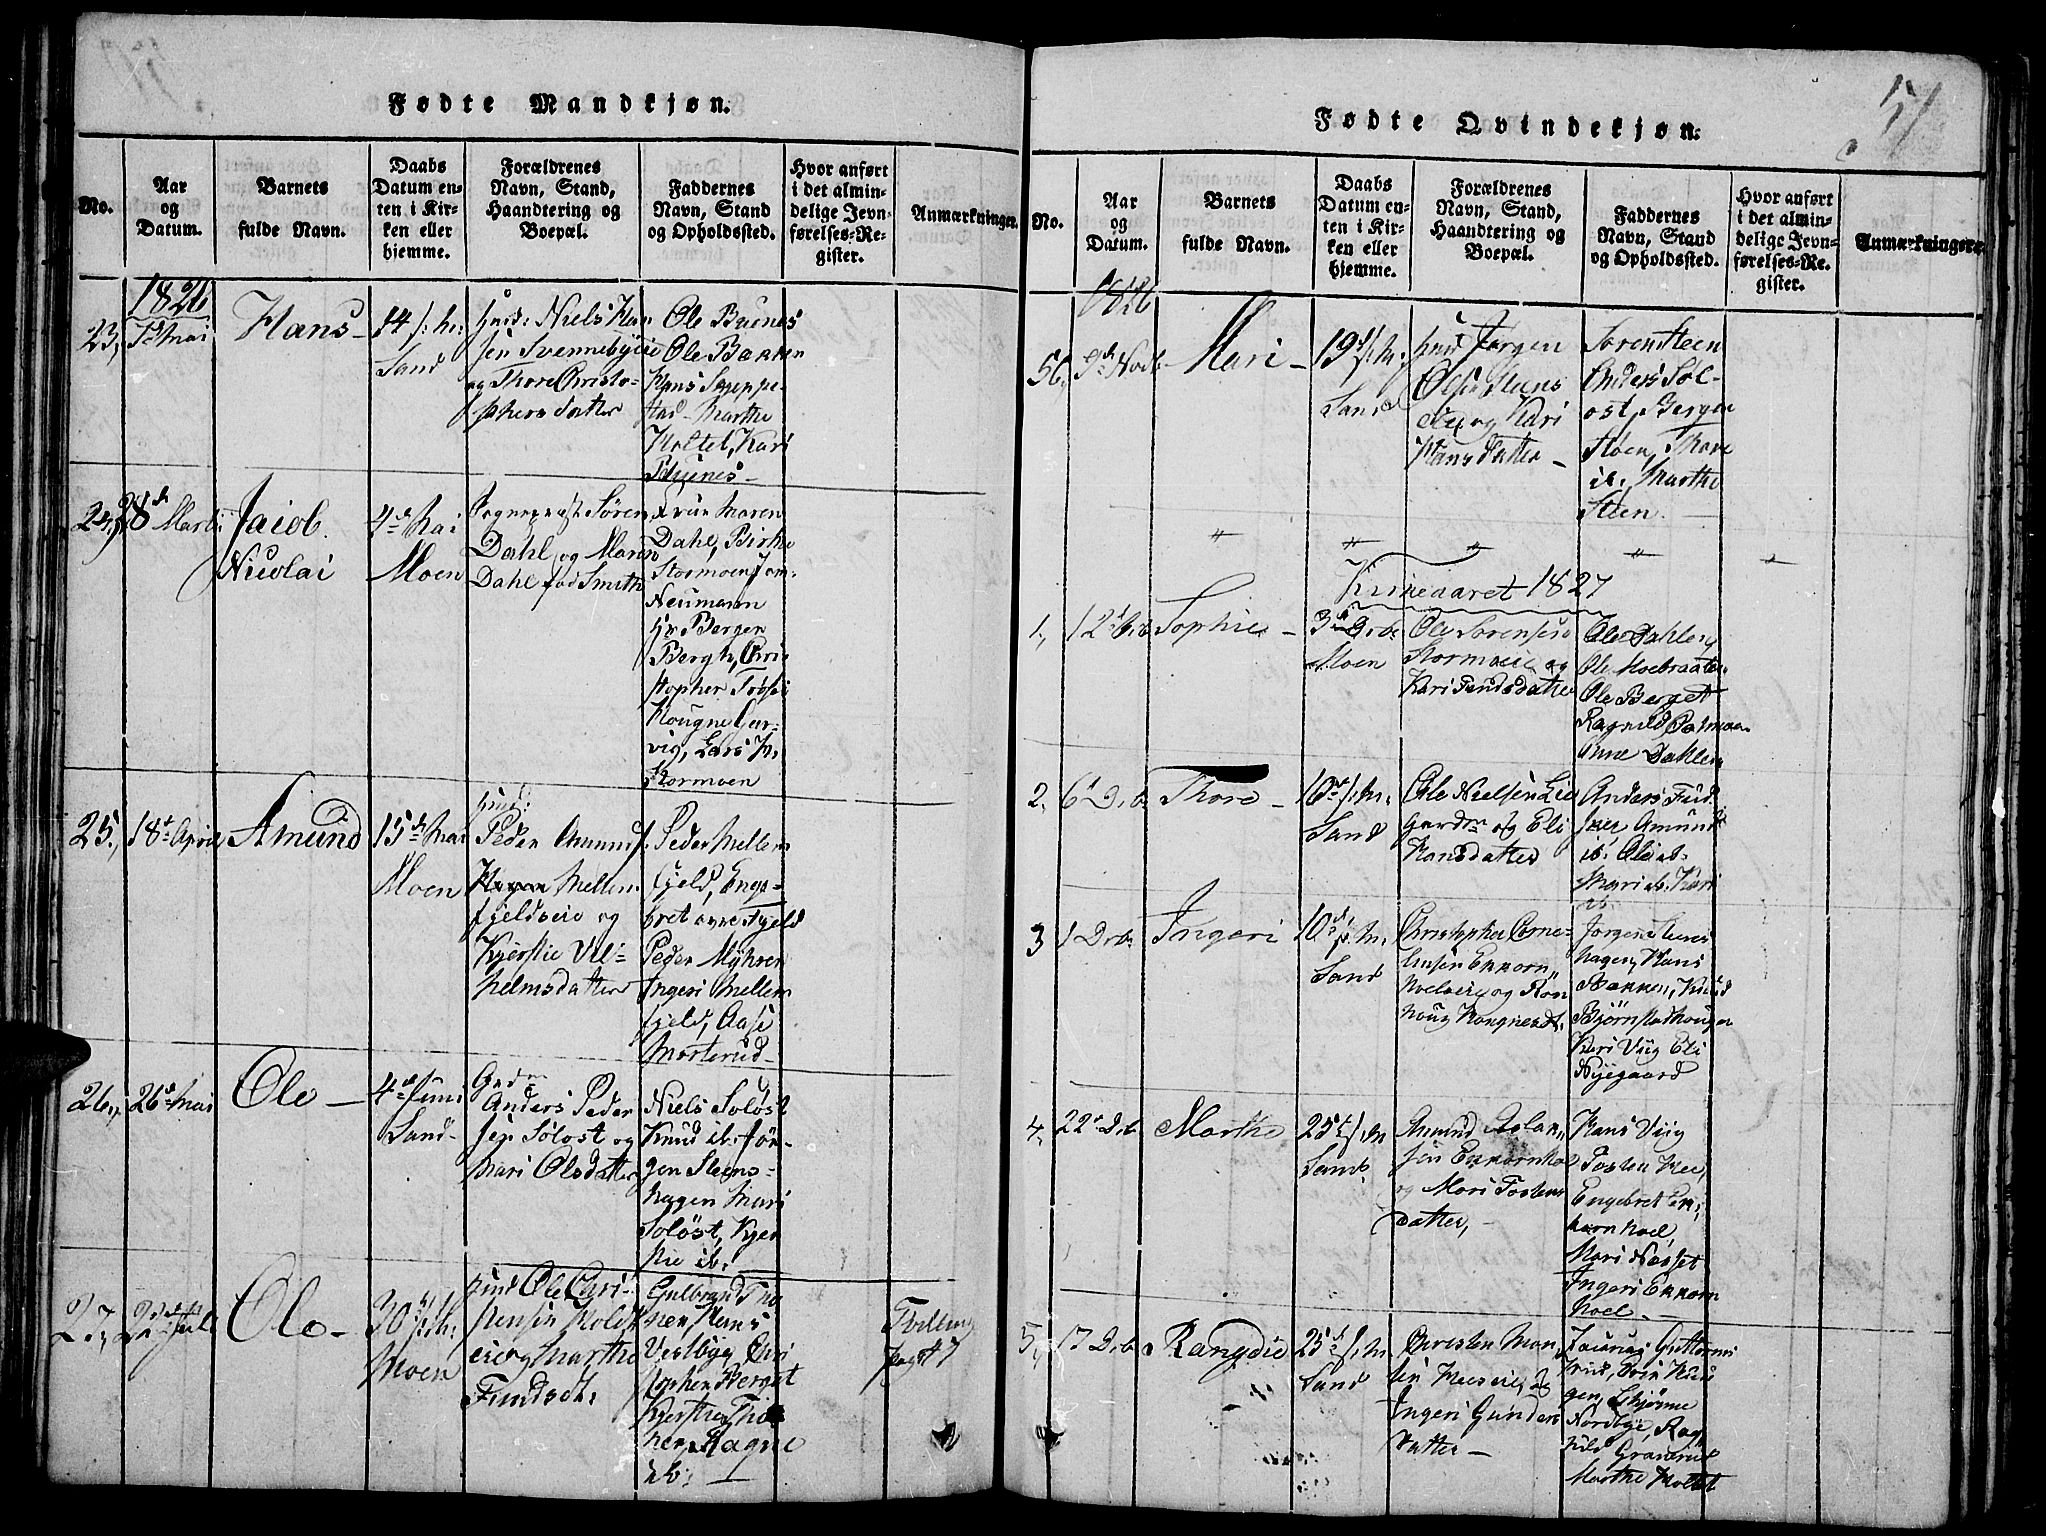 Fødte Mandkjøn.
No.
Aar
og
Datum.
Barnets
fulde Navn.
Daabs
Datum en-
ten i Kir-
ken eller
hjemme.
Forældrenes
Navn, Stand,
Haandtering og
Boepæl.
Faddernes
Navn, Stand
og Opholdssted.
Hvor anført
i det almin-
delige Jevn-
førelses-Re-
gister.
Anmærkninger.
1826
23,
Mai
Hans
14 /: h:
Sand
Huusd: Niels Han
sen Svennebyeie
og Thore Christo-
phersdatter
Ole Bruenes
Ole Bakken
Hans
stad Marthe
Holtet, Kari
Bruenes
24,
28de Marti
Jacob
Nicolai
4de Mai
Moen
Sogneprest Sören
Dahl og Maren
Dahl fød Smith
Fruu Maren
Dahl, Birthe
Stormoen, Jom.
Neumann
Hr Bergen
Bergh, Chri-
stopher
Lars H.
Stormoen
25,
18de April
Amund
15de Mai
Moen
Huusd:
Peder Amunds.
Mellem
fjeldeie og
Kjerstie Vil-
helmsdatter
Peder Mellem
fjeld, Enge-
bret øvre Fjeld
Peder Myhren
Ingeri Mellem
fjeld, Aase
Morterud
26,
26de Mai
Ole
4de Juni
Sand
Gaardm
Anders Peder
sen Soløst og
Mari Olsdatter
Niels Soløst
Knud ib: Jør-
gen Steens-
hagen Mari
Soløst, Kjer
stie ib.
27,
Juli
Ole
30 /: h:
Moen
Huusd Ole Chri-
stensen Molst
eie og Marthe
Findsdt:
Gulbrand Tho
Hans
Vestbye, Chri
stopher Berget
Kjersthe
Ragne
ib:
Tvilling
pag 47
Fødte Qvindekjøn.
51
No.
Aar
og
Datum.
Barnets
fulde Navn.
Daabs
Datum en-
ten i Kir-
ken eller
hjemme.
Forældrenes
Navn, Stand,
Haandtering og
Boepæl.
Faddernes
Navn, Stand
og Opholdssted.
Hvor anført
i det almin-
delige Jevn-
førelses-Re-
gister.
Anmærkninger.
1826
56,
Novb
Mari
19de /: h:
Sand
Huusd Jørgen
Olsen Steens
eie og Kari
Hansdatter
Soren Steen
Anders Sol-
ost, Bergen
Støen, Thore
ib. Marthe
Steen
Kirkeaaret 1827
1,
12
Sophie
3de Drb
Moen
Ole Sorensen
Stormoeie og
Kari Findsdatter
Ole Dahlen
Ole Moebraaten
Ole Berget
Ragnild
Anne Dahlen
2,
6 Drb
Thore
10de /: h:
Sand
Ole Nielsen Lie
Gaardm og Eli
Hansdatter
Anders
Amund
ib: Ole ib.
Mari ib. Kari
ib.
3
1 Drb
Ingeri
10de /: h:
Sand
Christopher Corne-
liusen Ekkorn-
hoeleie og Ron
noug Haagnesdt.
Jørgen Steens
hagen, Hans
Bakken, Knud
Bjørnstadhougen
Kari Viig Eli
Nyegaard
4,
22 Drb
Marthe
25de /: h
Sand
Amund
sen Ekkornhol
og Mari Tostens
datter,
Hans Viig
Tosten Hee,
Engebret Ek-
kornhoel,
Mari Næsset
Ingeri Ekkorn
hoel
5,
17 Drb
Rangdie
25de /: h
Sand
Christen Mon
sen Heeseie, og
Ingeri Gunders
datter
Guttorms
Nordbye, Rag
nild Graverud
Marthe Holtet